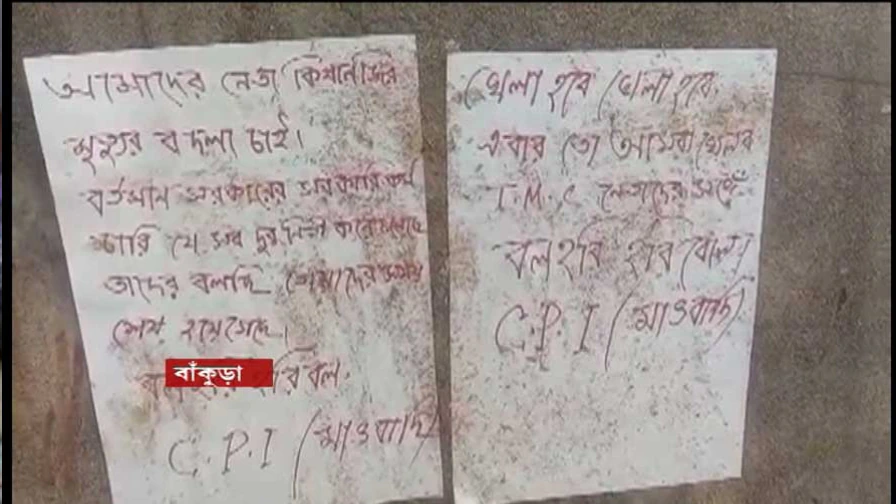 আমাদের নেতা কিষানজির
মৃত্যুর বদলা চাই।
বর্তমান সরকারের সরকারি কর্ম
চারি যে সব দুর্নিতী করে চলেছে
তাদের বলছি তোমাদের সময়
শেষ হয়ে গেছে।
হরি বল
C.P.I (মাওবাদি)
বাঁকুড়া
খেলা হবে খেলা হবে
এবার তো আমরা খেলব
T.M.C নেতাদের সঙ্গে
বল হরি হরি বোল
C.P.I (মাওবাদি)